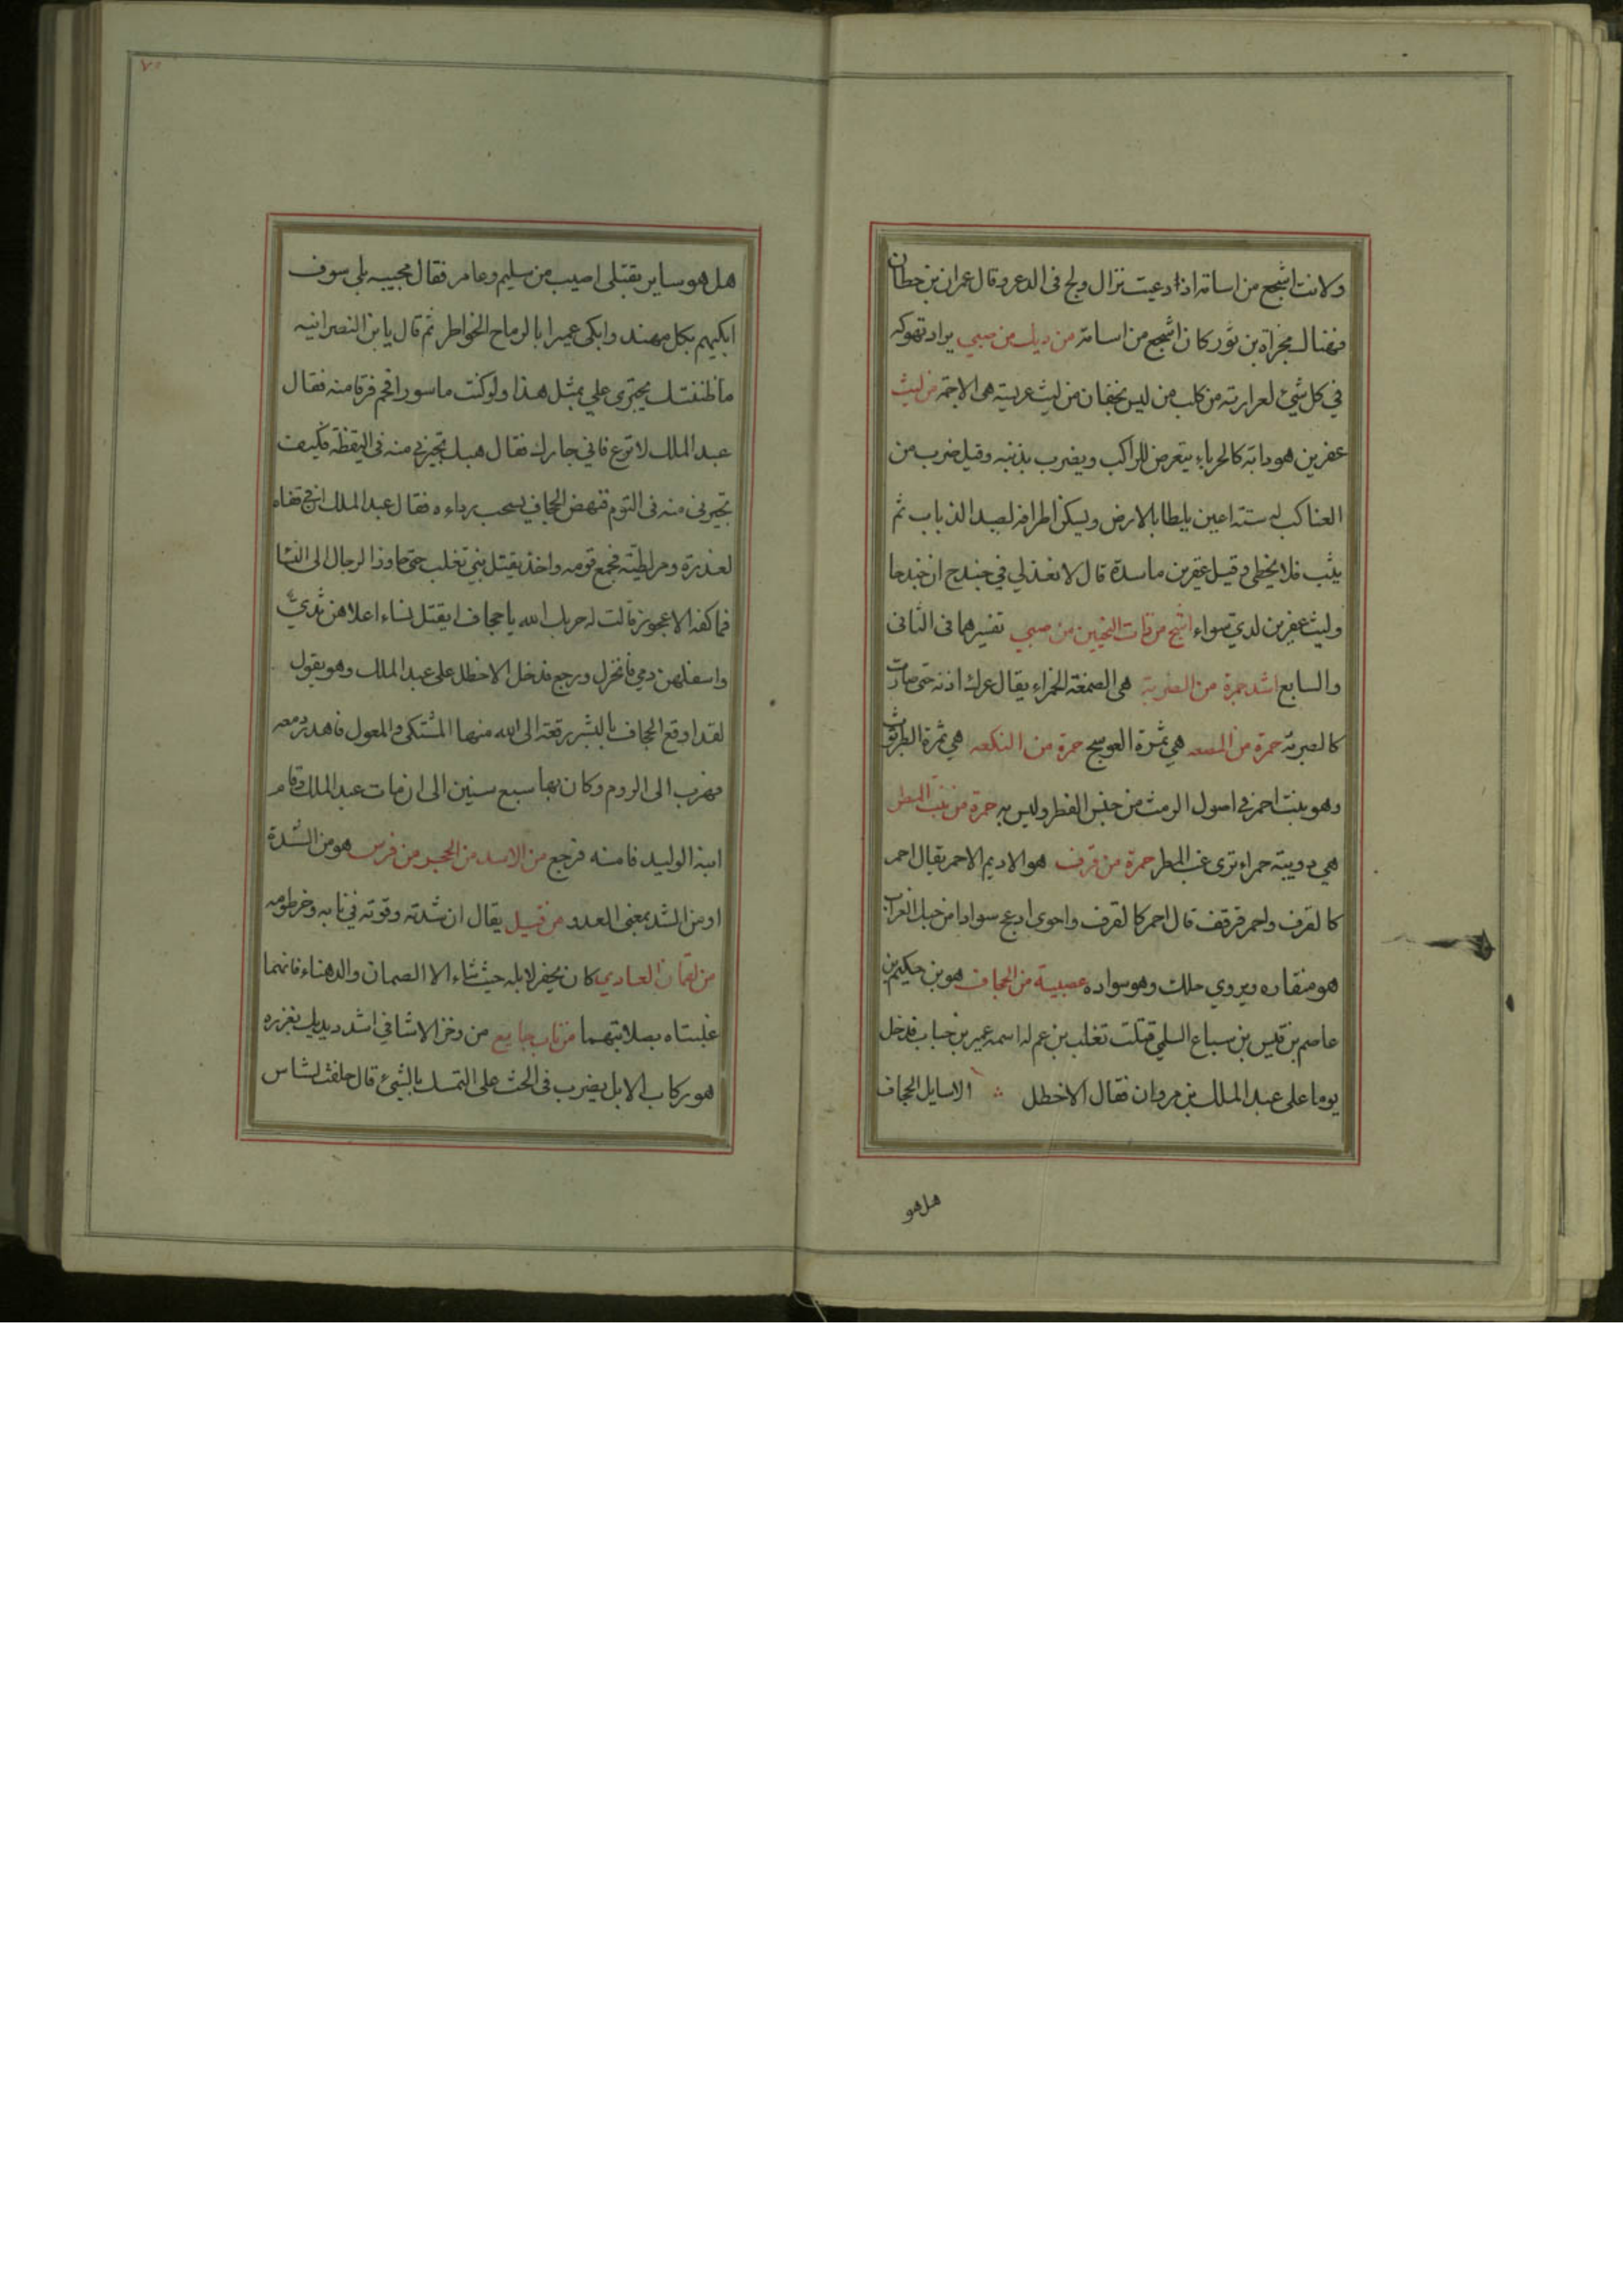 ولانت اشجع من اسامة اذا دعيت نزال ولج فى الدعر وقال عمران بن حطان
فهناك مجزاة بن ثور كان اشجع من اسامة من ديك من صبي يراد تهوكه
في كل شيئ لعرارته من كلب من ليس بخفان من ليث عريسة هى الاجمة من ليث
عفرين هو دابة كالحرباء يتعرض للراكب ويضرب بذنبه وقيل ضرب من
العناكب له ستة اعين يلطا بالارض ويسكن اطرافه لصيد الذباب ثم
يثب فلا يخطى وقيل عفرين ماسدة قال لا تعذلي في جندج ان خندجا
وليث عفرين لدي سواء اشح من ذات النحيين من صبي تفسيرهما فى الثانى
والسابع اشد حمرة من الصربة هى الصمغة الحمراء يقال عرك اذنه حتى صارت
كالصربة حمرة من المصعه هي ثمرة العوسج حمرة من النكعه هي ثمرة الطرثوث
وهو ينبت احمر في اصول الرمث من جنس الفطر وليس به حمرة من بنت المطر
هي دويبة حمراء ترى غب المطر حمرة من قرف هو الاديم الاحمر يقال احمر
كالقرف واحمر قرقف قال احمر كالقرف واحوى ادعج سوادا من حنك الغراب
هو منقاره ويروي حلك وهو سواده عصبية من الجحاف هو بن حكيم بن
عاصم بن قيس بن سباع السلمي قتلت تغلب بن عم له اسمه عمير بن حباب فدخل
يوما على عبد الملك بن مروان فقال الاخطل الا سايل الجحاف
هل هو
٧٠
هل هو ساير بقتلى اصيب من سليم وعامر فقال مجيبه بلى سوف
ابكيهم بكل مهند وابكى عميرا بالرماح الخواطر ثم قال يا بن النصرانيه
ما ظننتك يجترى علي بمثل هذا ولو كنت ماسورا فحم فرقا منه فقال
عبد الملك لا ترع فاني جارك فقال هبك تجيرني منه فى اليقظة فكيف
تجيرنى منه فى النوم فنهض الجحاف يسحب رداءه فقال عبد الملك ان في قفاه
لغدرة ومر لطيته فجمع قومه واخذ يقتل بني تغلب حتى جاوز الرجال الى النسا
فما كفه الا عجوز قالت له حربك الله يا جحاف ايقتل نساء اعلاهن ثدي
واسفلهن دمي فانخزل ورجع فدخل الاخطل على عبد الملك وهو يقول
لقد اوقع الجحاف بالبشر رقعة الى الله منها المشتكى والمعول فاهدر دمه
فهرب الى الروم وكان بها سبع سنين الى ان مات عبد الملك وقام
ابنه الوليد فامنه فرجع من الاسد من الحجر من فرس هو من الشدة
او من الشد بمعنى العدو من فيل يقال ان شدته وقوته في نابه وخرطومه
من لقمان العادي كان يحفر لابله حيث شاء الا الصمان والدهناء فانهما
غلبتاه بصلابتهما من ناب جايع من وخز الاشافي اشدد يديك بغرزه
هو ركاب الابل يضرب فى الحث على التمسك بالشيئ قال حلفت لشاس